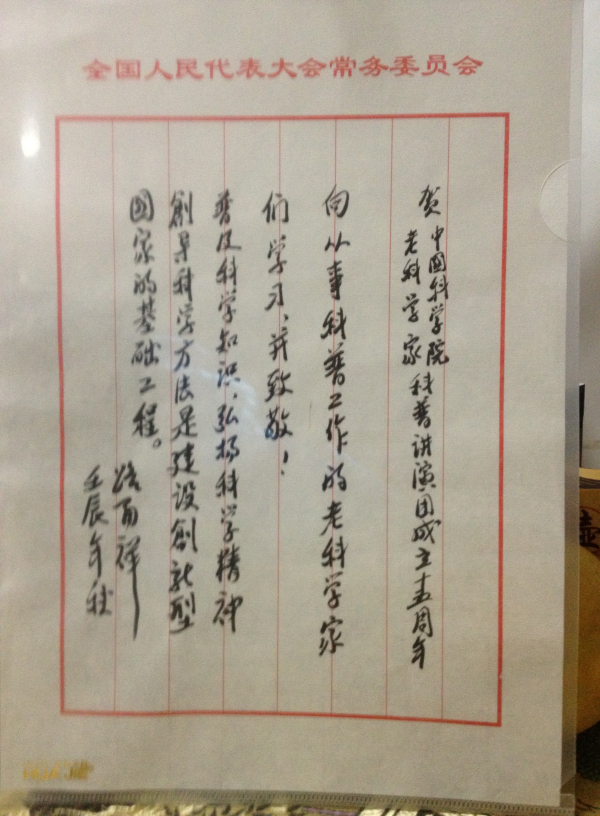 全国人民代表大会常务委员会
贺中国科学院
老科学家科普讲演团成立十五周年
向从事科普工作的老科学家
们学习、并致敬！
普及科学知识、弘扬科学精神
創导科学方法是建设創新型
國家的基础工程。
路甬祥
壬辰年秋